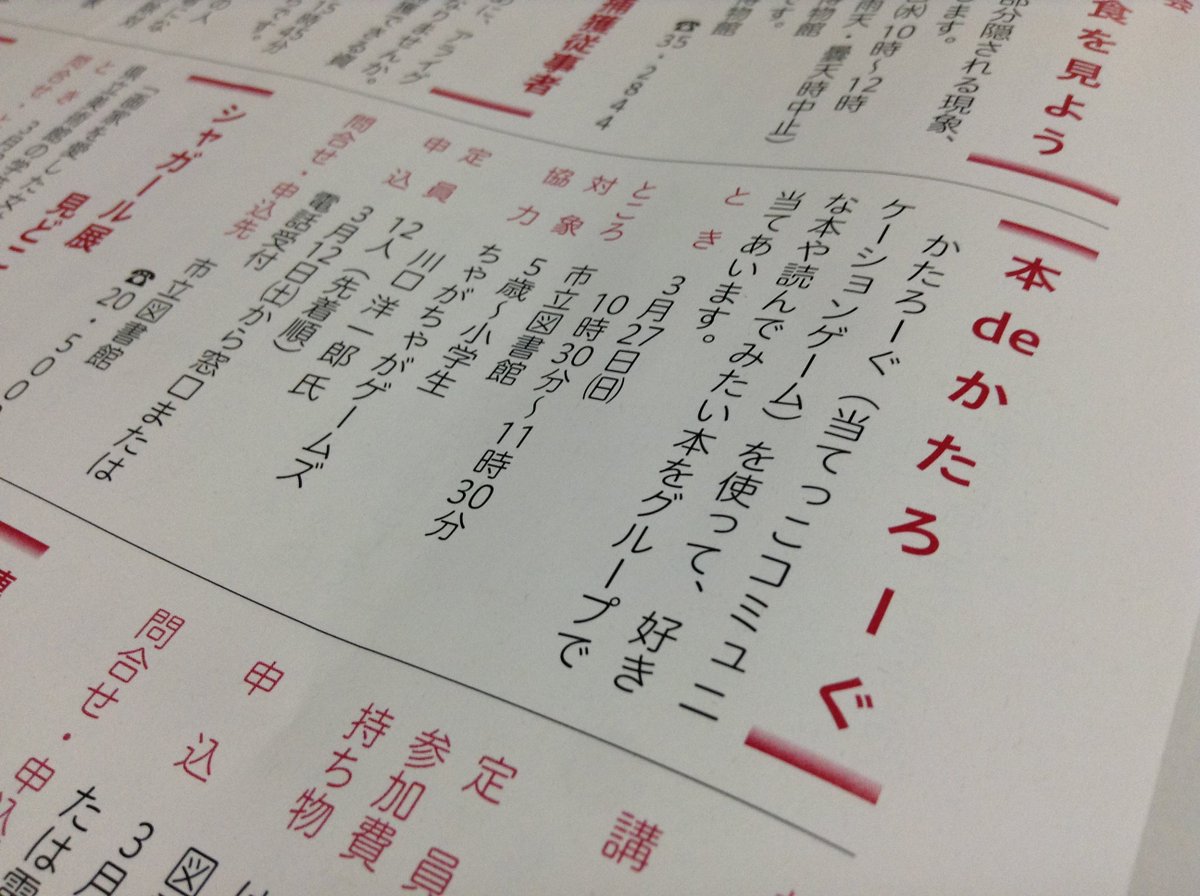 食を見よう
部分隠される現象、
します。
㈬10時～12時
雨天・曇天時中止）
物館
捕獲従事者
☎35・2844
本deかたろーぐ
かたろーぐ（当てっこコミュニ
ケーションゲーム）を使って、好き
な本や読んでみたい本をグループで
当てあいます。
とき 3月27日㈰
10時30分～11時30分
ところ 市立図書館
対象 5歳～小学生
協力 ちゃがちゃがゲームズ
川口 洋一郎 氏
定員 12人（先着順）
申込 3月12日㈯から窓口または
電話受付
問合せ・申込先
市立図書館
☎20・500
シャガール展
見どこ
講
定員
参加費
持ち物
申込
3月
たは電
問合せ・申込